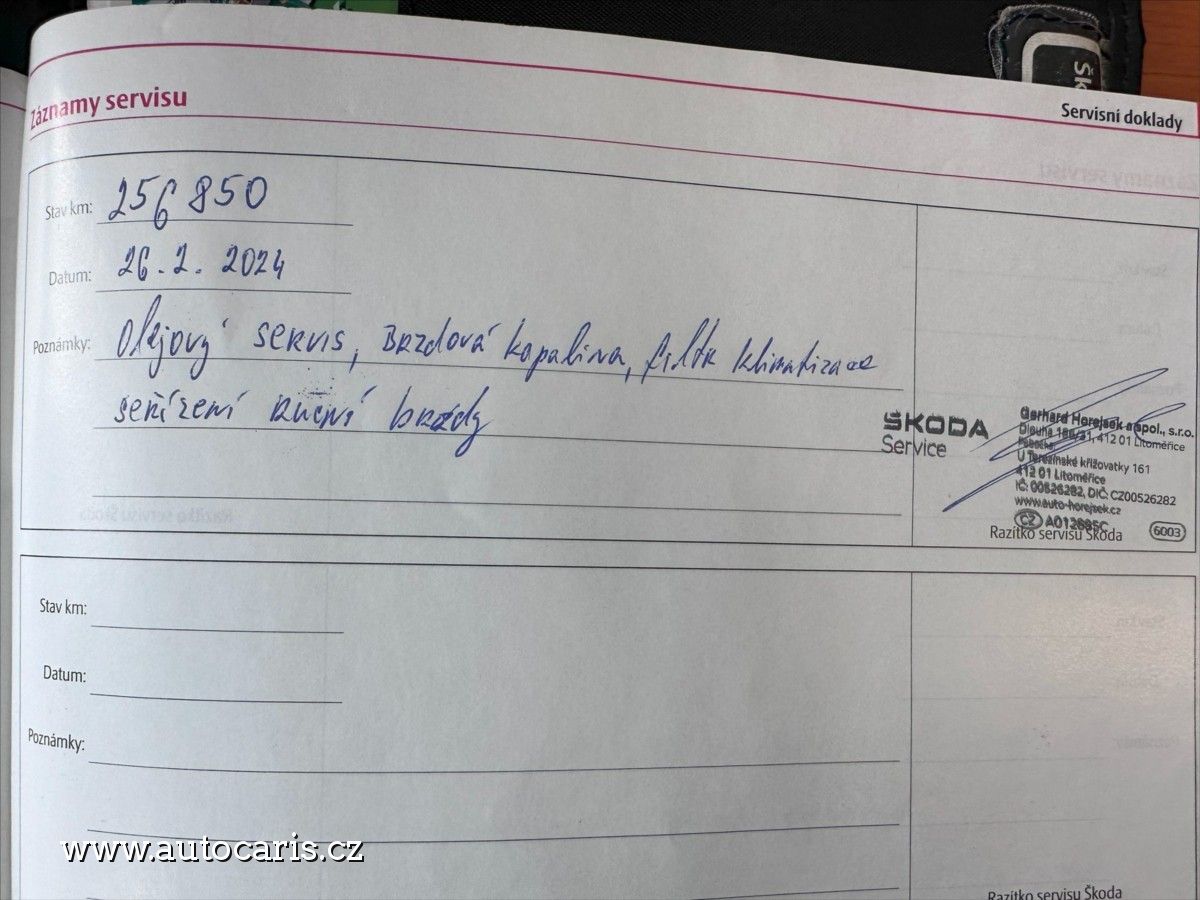 Záznamy servisu
Servisní doklady
Stav km: 256 850
Datum: 26.2.2024
Poznámky: Olejový servis, Brzdová kapalina, filtr klimatizace
seřízení ruční brzdy
ŠKODA
Service
Gerhard Horejsek a spol., s.r.o.
Dlouhá 412 01 Litoměřice
U Terezínské křižovatky 161
412 01 Litoměřice
IČ: 00526282, DIČ: CZ00526282
www.auto-horejsek.cz
CZ
Razítko servisu Škoda
6003
Stav km:
Datum:
Poznámky:
Razítko servisu Škoda
www.autocaris.cz